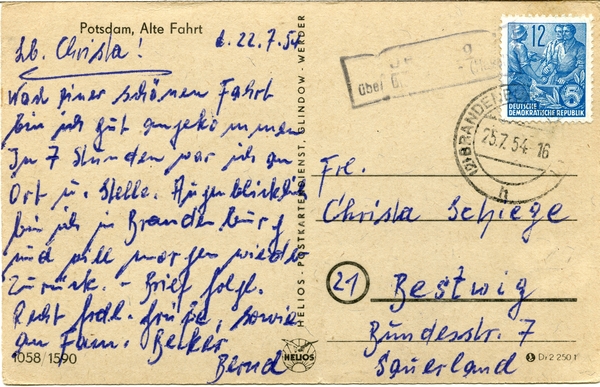 Potsdam, Alte Fahrt
d. 22.7.54
Lb. Christa!
Nach einer schönen Fahrt
bin ich gut angekommen
In 7 Stunden war ich an
Ort u. Stelle. Augenblicklich
bin ich in Brandenburg
und will morgen wieder
zurück. - Brief folgt.
Recht frdl. Grüße, sowie
an Fam. Becker
Bernd
1058/1590
HELIOS - POSTKARTENDIENST, GLINDOW - WERDER
HELIOS
über
12
DEUTSCHE
DEMOKRATISCHE REPUBLIK
5
BRANDENB
25.7.54-16
h
Frl.
Christa Schiege
21 Bestwig
Bundesstr. 7
Sauerland
D/2 250 f